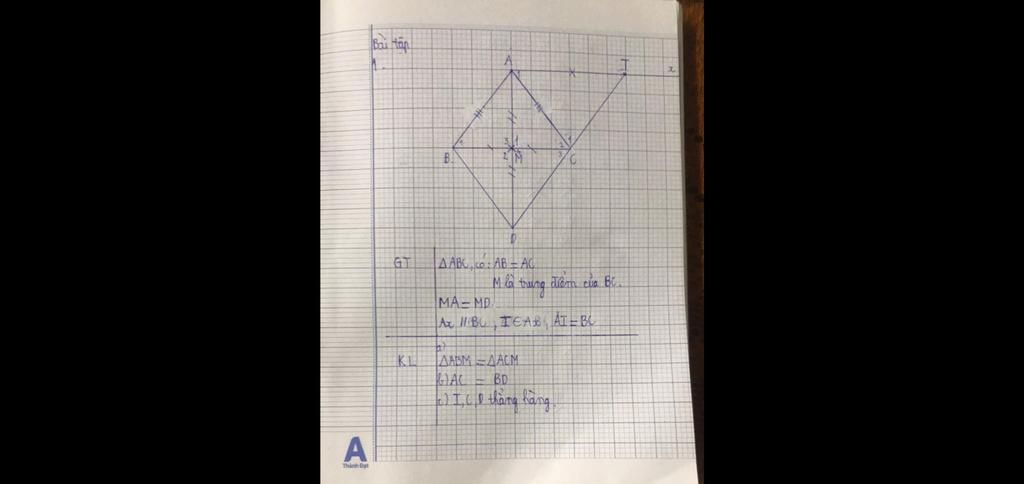 Bài tập
1.
A
I
x
1
B
1
3 1
2 M
2 1
3 C
D
GT
ΔABC, có: AB = AC
M là trung điểm của BC.
MA = MD
Ax // BC, I ∈ Ax, AI = BC
a)
KL ΔABM = ΔACM
b) AC = BD
c) I, C, D thẳng hàng.
A
Thành Đạt